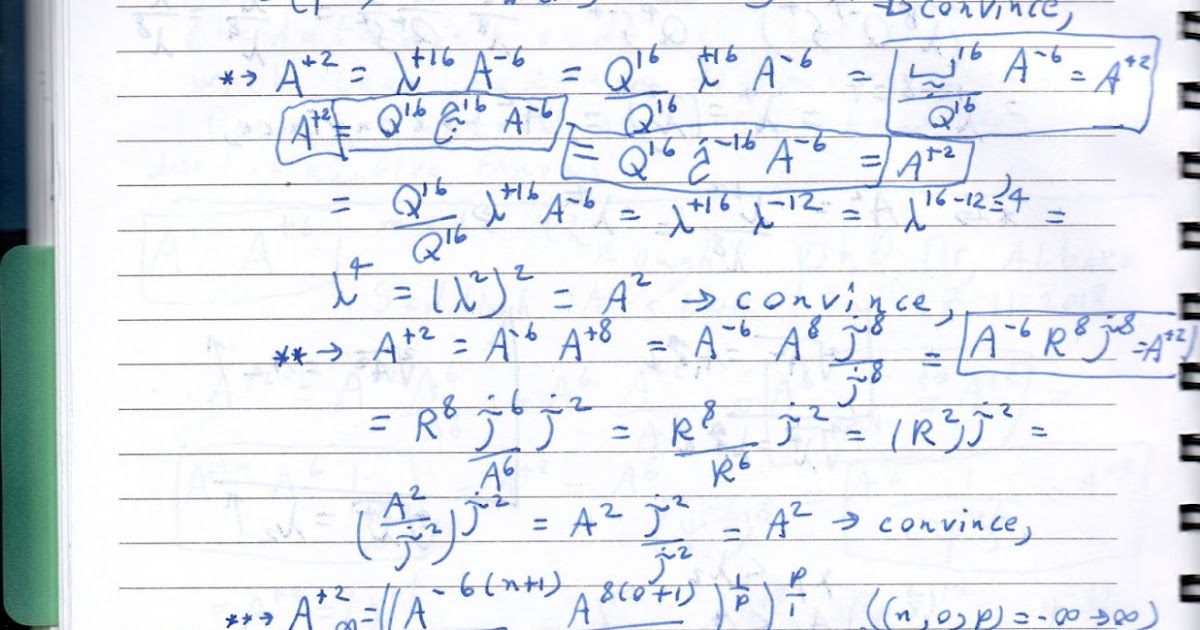 → convince,
*→ A⁺² = λ⁺¹⁶ A⁻⁶ = Q¹⁶/Q¹⁶ λ⁺¹⁶ A⁻⁶ = /Q¹⁶ A⁻⁶ = A⁺²
A⁺² = Q¹⁶ ¹⁶ A⁻⁶ = Q¹⁶ ⁻¹⁶ A⁻⁶ = A⁺²,
= Q¹⁶/Q¹⁶ λ⁺¹⁶ A⁻⁶ = λ⁺¹⁶ λ⁻¹² = λ¹⁶⁻¹²⁼⁴ =
λ⁴ = (λ²)² = A² → convince,
**→ A⁺² = A⁻⁶ A⁺⁸ = A⁻⁶ A⁸ j⁸/j⁸ = A⁻⁶ R⁸ j⁸ = A⁺²
= R⁸ j⁶/A⁶ j² = R⁸/R⁶ j² = (R²) j² =
(A²/j²) j² = A² j²/j² = A² → convince,
**→ A⁺²∞ = ((A⁻⁶⁽ⁿ⁺¹⁾ A⁸⁽⁰⁺¹⁾)^(1/p))^(p/1) ((n, o, p) = -∞ → ∞)